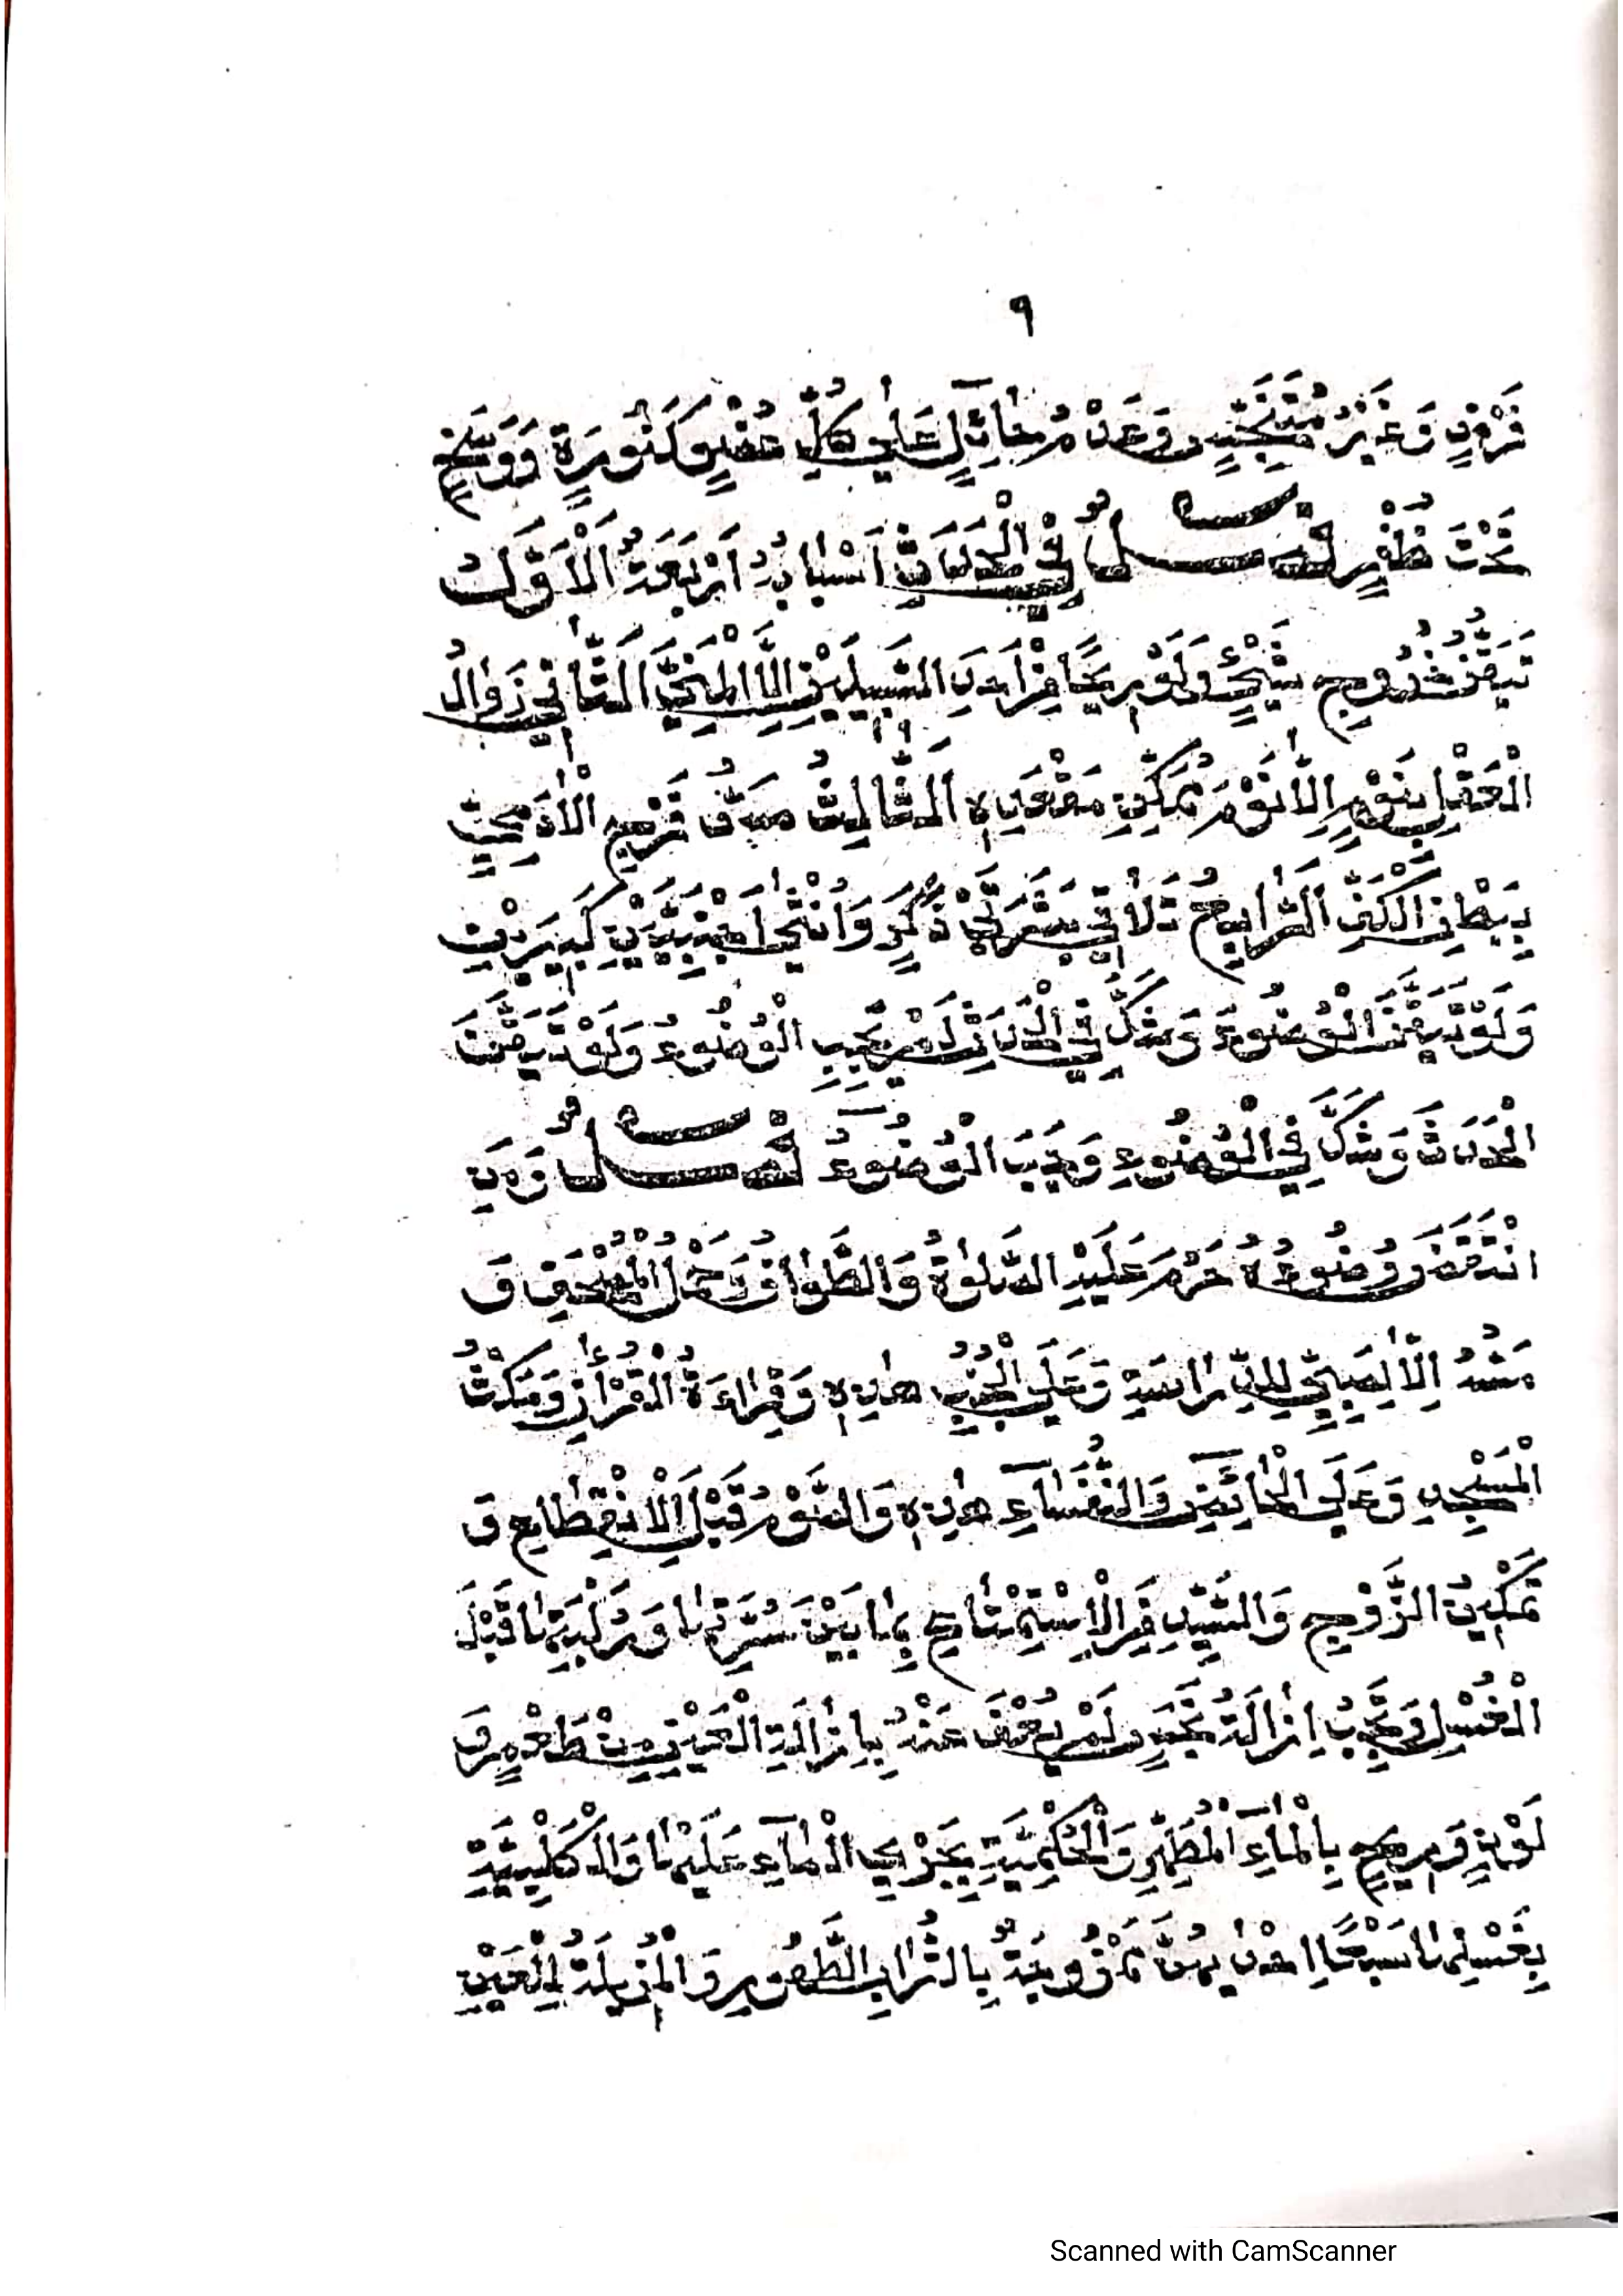 ٩
فَرْضٍ وَغَيْرُ مُتَنَجِّسٍ وَعَدَمُ حَائِلٍ عَلَى كُلِّ عُضْوٍ كَنُورَةٍ وَوَسَخٍ
تَحْتَ ظُفْرٍ فَصْلٌ فِي الْحَدَثِ اَسْبَابُهُ اَرْبَعَةٌ اَلْاَوَّلُ
تَيَقُّنُ خُرُوجِ شَيْءٍ وَلَوْ رِيحًا مِنْ اَحَدِ السَّبِيلَيْنِ اِلَّا الْمَنِيَّ اَلثَّانِي زَوَالُ
الْعَقْلِ بِنَوْمٍ اِلَّا نَوْمَ مُمَكِّنٍ مَقْعَدِهِ اَلثَّالِثُ مَسُّ فَرْجِ الْاٰدَمِيِّ
بِبَطْنِ الْكَفِّ اَلرَّابِعُ تَلَاقِي بَشَرَتَيْ ذَكَرٍ وَاُنْثَى اَجْنَبِيَّيْنِ كَبِيرَيْنِ
وَلَوْ تَيَقَّنَ الْوُضُوءَ وَشَكَّ فِي الْحَدَثِ لَمْ يَجِبِ الْوُضُوءُ وَلَوْ تَيَقَّنَ
الْحَدَثَ وَشَكَّ فِي الْوُضُوءِ وَجَبَ الْوُضُوءُ فَصْلٌ وَمَنِ
انْتَقَضَ وُضُوءُهُ حَرُمَ عَلَيْهِ الصَّلٰوةُ وَالطَّوَافُ وَحَمْلُ الْمُصْحَفِ وَ
مَسُّهُ اِلَّا لِصَبِيٍّ لِلدِّرَاسَةِ وَعَلَى الْجُنُبِ هٰذِهِ وَقِرَاءَةُ الْقُرْاٰنِ وَمَكْثُ
الْمَسْجِدِ وَعَلَى الْحَائِضِ وَالنُّفَسَاءِ هٰذِهِ وَالصَّوْمُ قَبْلَ الْاِنْقِطَاعِ وَ
تَمْكِينُ الزَّوْجِ وَالسَّيِّدِ مِنَ الْاِسْتِمْتَاعِ بِمَا بَيْنَ سُرَّتِهَا وَرُكْبَتِهَا قَبْلَ
الْغُسْلِ وَيَجِبُ اِزَالَةُ نَجَسٍ لَمْ يُعْفَ عَنْهُ بِاِزَالَةِ الْعَيْنِ مِنْ طَعْمٍ وَ
لَوْنٍ وَرِيحٍ بِالْمَاءِ الْمُطَهِّرِ وَالْحُكْمِيَّةِ بِجَرْيِ الْمَاءِ عَلَيْهَا وَالْكَلْبِيَّةِ
بِغَسْلِهَا سَبْعًا اِحْدٰىهُنَّ مَمْزُوجَةٌ بِالتُّرَابِ الطَّهُورِ وَالْمُزِيلَةُ لِلْعَيْنِ
Scanned with CamScanner